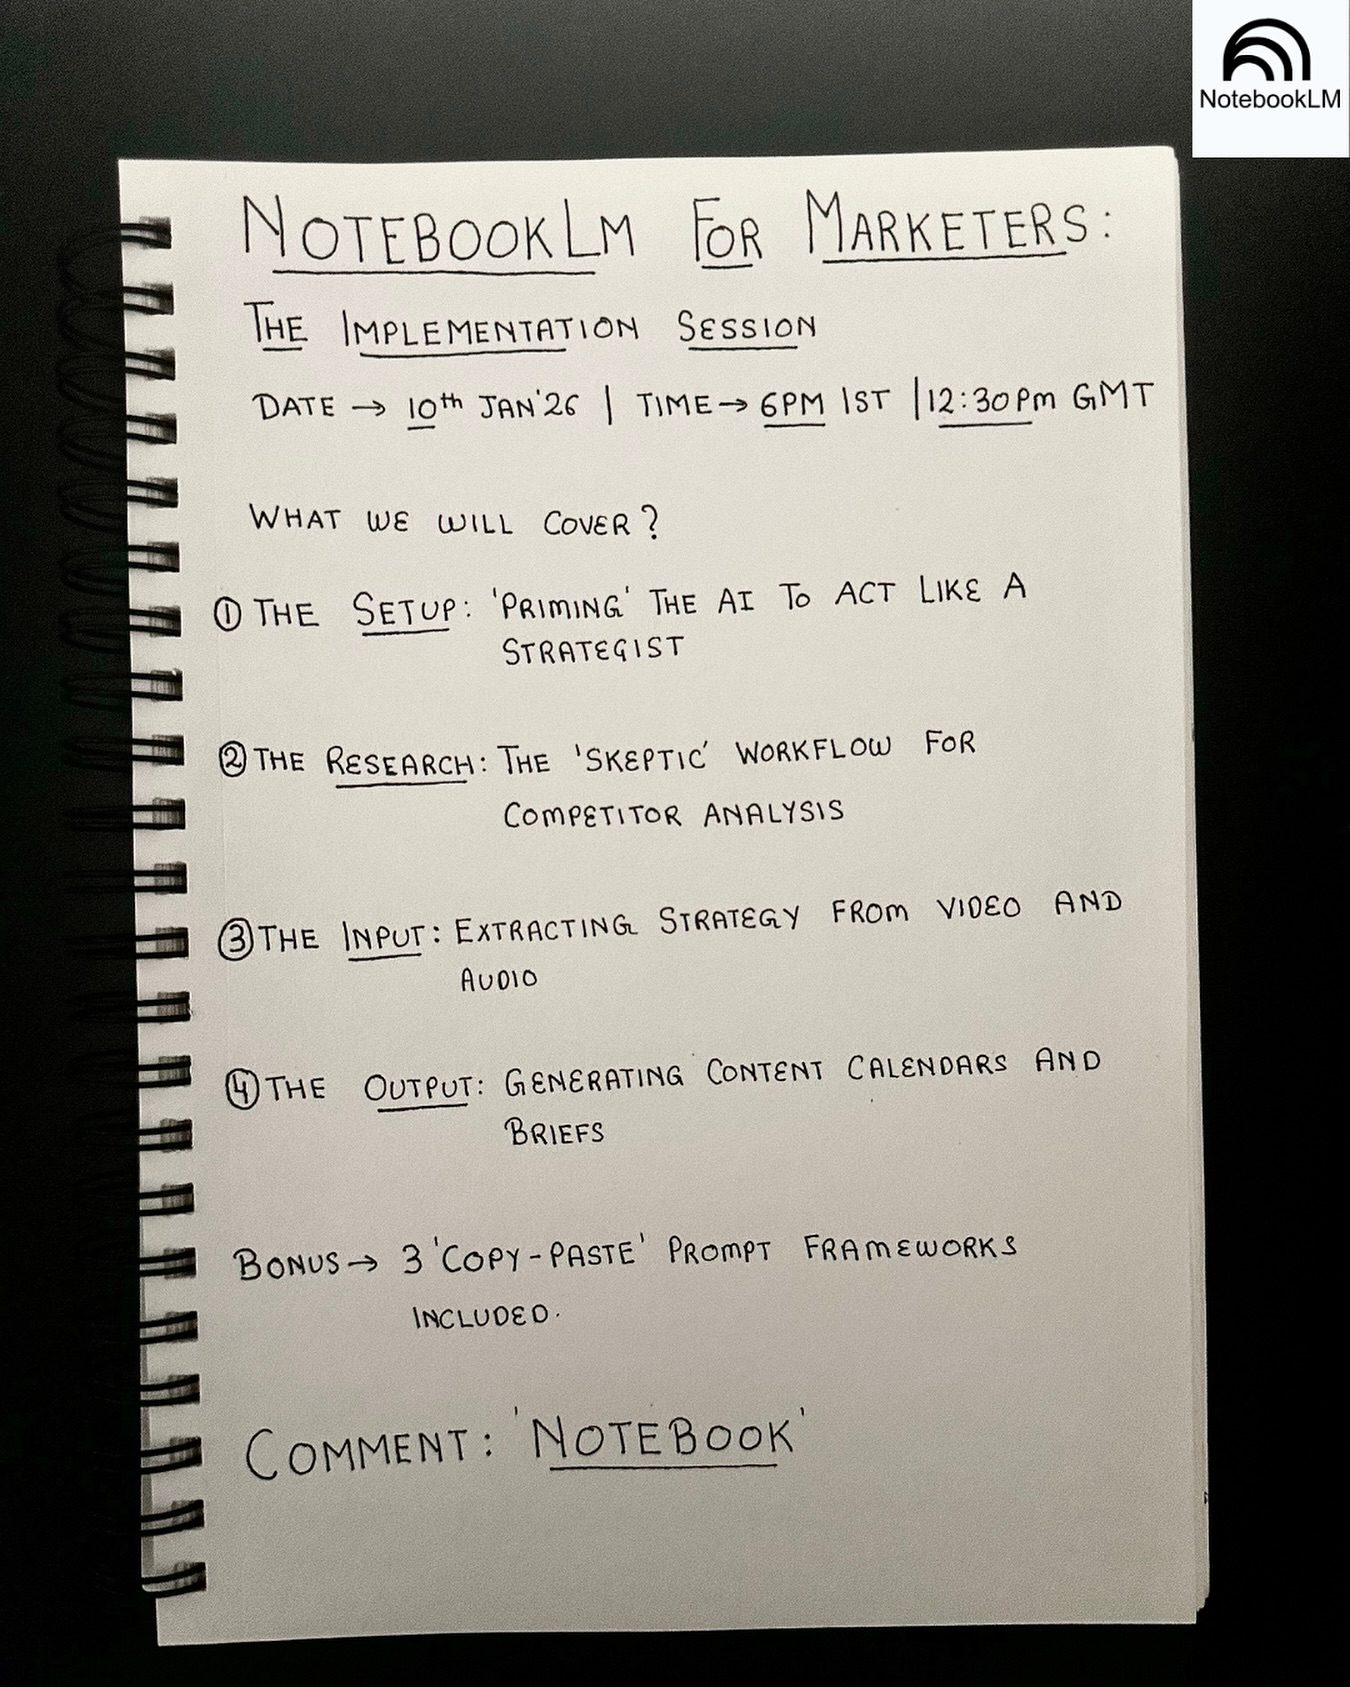 NotebookLM
NOTEBOOKLM FOR MARKETERS:
THE IMPLEMENTATION SESSION
DATE → 10th JAN'26 | TIME → 6PM IST | 12:30PM GMT
WHAT WE WILL COVER?
① THE SETUP: 'PRIMING' THE AI TO ACT LIKE A
STRATEGIST
② THE RESEARCH: THE 'SKEPTIC' WORKFLOW FOR
COMPETITOR ANALYSIS
③ THE INPUT: EXTRACTING STRATEGY FROM VIDEO AND
AUDIO
④ THE OUTPUT: GENERATING CONTENT CALENDARS AND
BRIEFS
BONUS → 3 'COPY-PASTE' PROMPT FRAMEWORKS
INCLUDED.
COMMENT: 'NOTEBOOK'